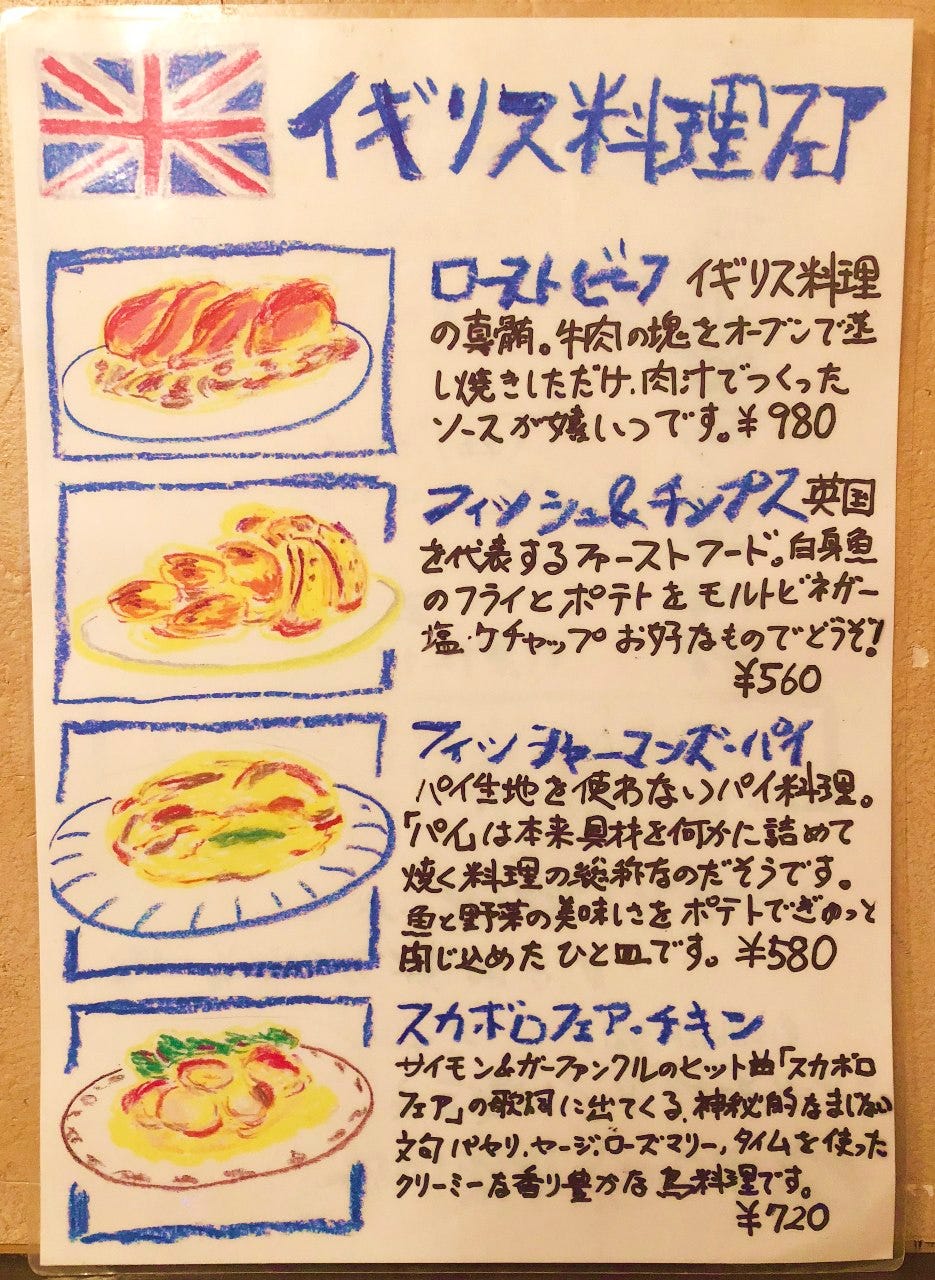 イギリス料理フェア
ローストビーフ イギリス料理
の真髄。牛肉の塊をオーブンで蒸
し焼きしただけ、肉汁でつくった
ソースが嬉しいつです。¥980
フィッシュ&チップス 英国
を代表するファーストフード。白身魚
のフライとポテトをモルトビネガー
塩・ケチャップお好なものでどうぞ!
¥560
フィッシャーマンズ・パイ
パイ生地を使わないパイ料理。
「パイ」は本来具材を何かに詰めて
焼く料理の総称なのだそうです。
魚と野菜の美味しさをポテトでぎゅっと
閉じ込めたひと皿です。¥580
スカボロフェア・チキン
サイモン&ガーファンクルのヒット曲「スカボロ
フェア」の歌詞に出てくる、神秘的なまじない
文句パセリ、セージ、ローズマリー、タイムを使った
クリーミーな香り豊かな鳥料理です。
¥720